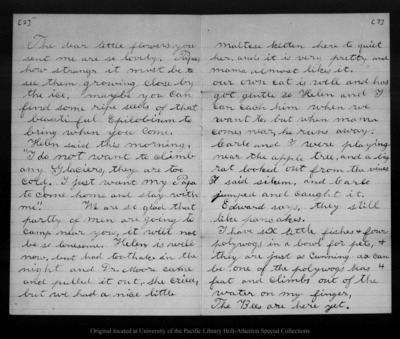 [2]
The dear little flowers you
sent me are so lovely. Papa,
how strange it must be to
see them growing close by
the ice. Maybe you can
find some ripe seeds of that
beautiful Epilobium to
bring when you come.
Helen said this morning,
"I do not want to climb
any Glaciers, they are too
cold. I just want my Papa
to come home and stay with
me." We are so glad that
party of men are going to
camp near you, it will not
be so lonesome. Helen is well
now, but had toothake in the
night and Dr. Moore came
and pulled it out, she cried,
but we had a nice little
[3]
maltese kitten here to quiet
her, and it is very pretty and
mama almost likes it.
our own cat is well and has
got gentle so Helen and I
can each him when we
want to, but when mama
comes near, he runs away.
Carlo and I were playing
near the apple tree, and a big
rat looked out from the vines
I said sikem, and Carlo
jumped and caught it.
Edward says, they still
like pancakes.
I have six little fishes & four
polywogs in a bowl for pets, &
they are just as cunning as can
be. one of the polywogs has 4
feet and climbs out of the
water on my finger,
The Bees are here yet.
Original located at University of the Pacific Library Holt-Atherton Special Collections